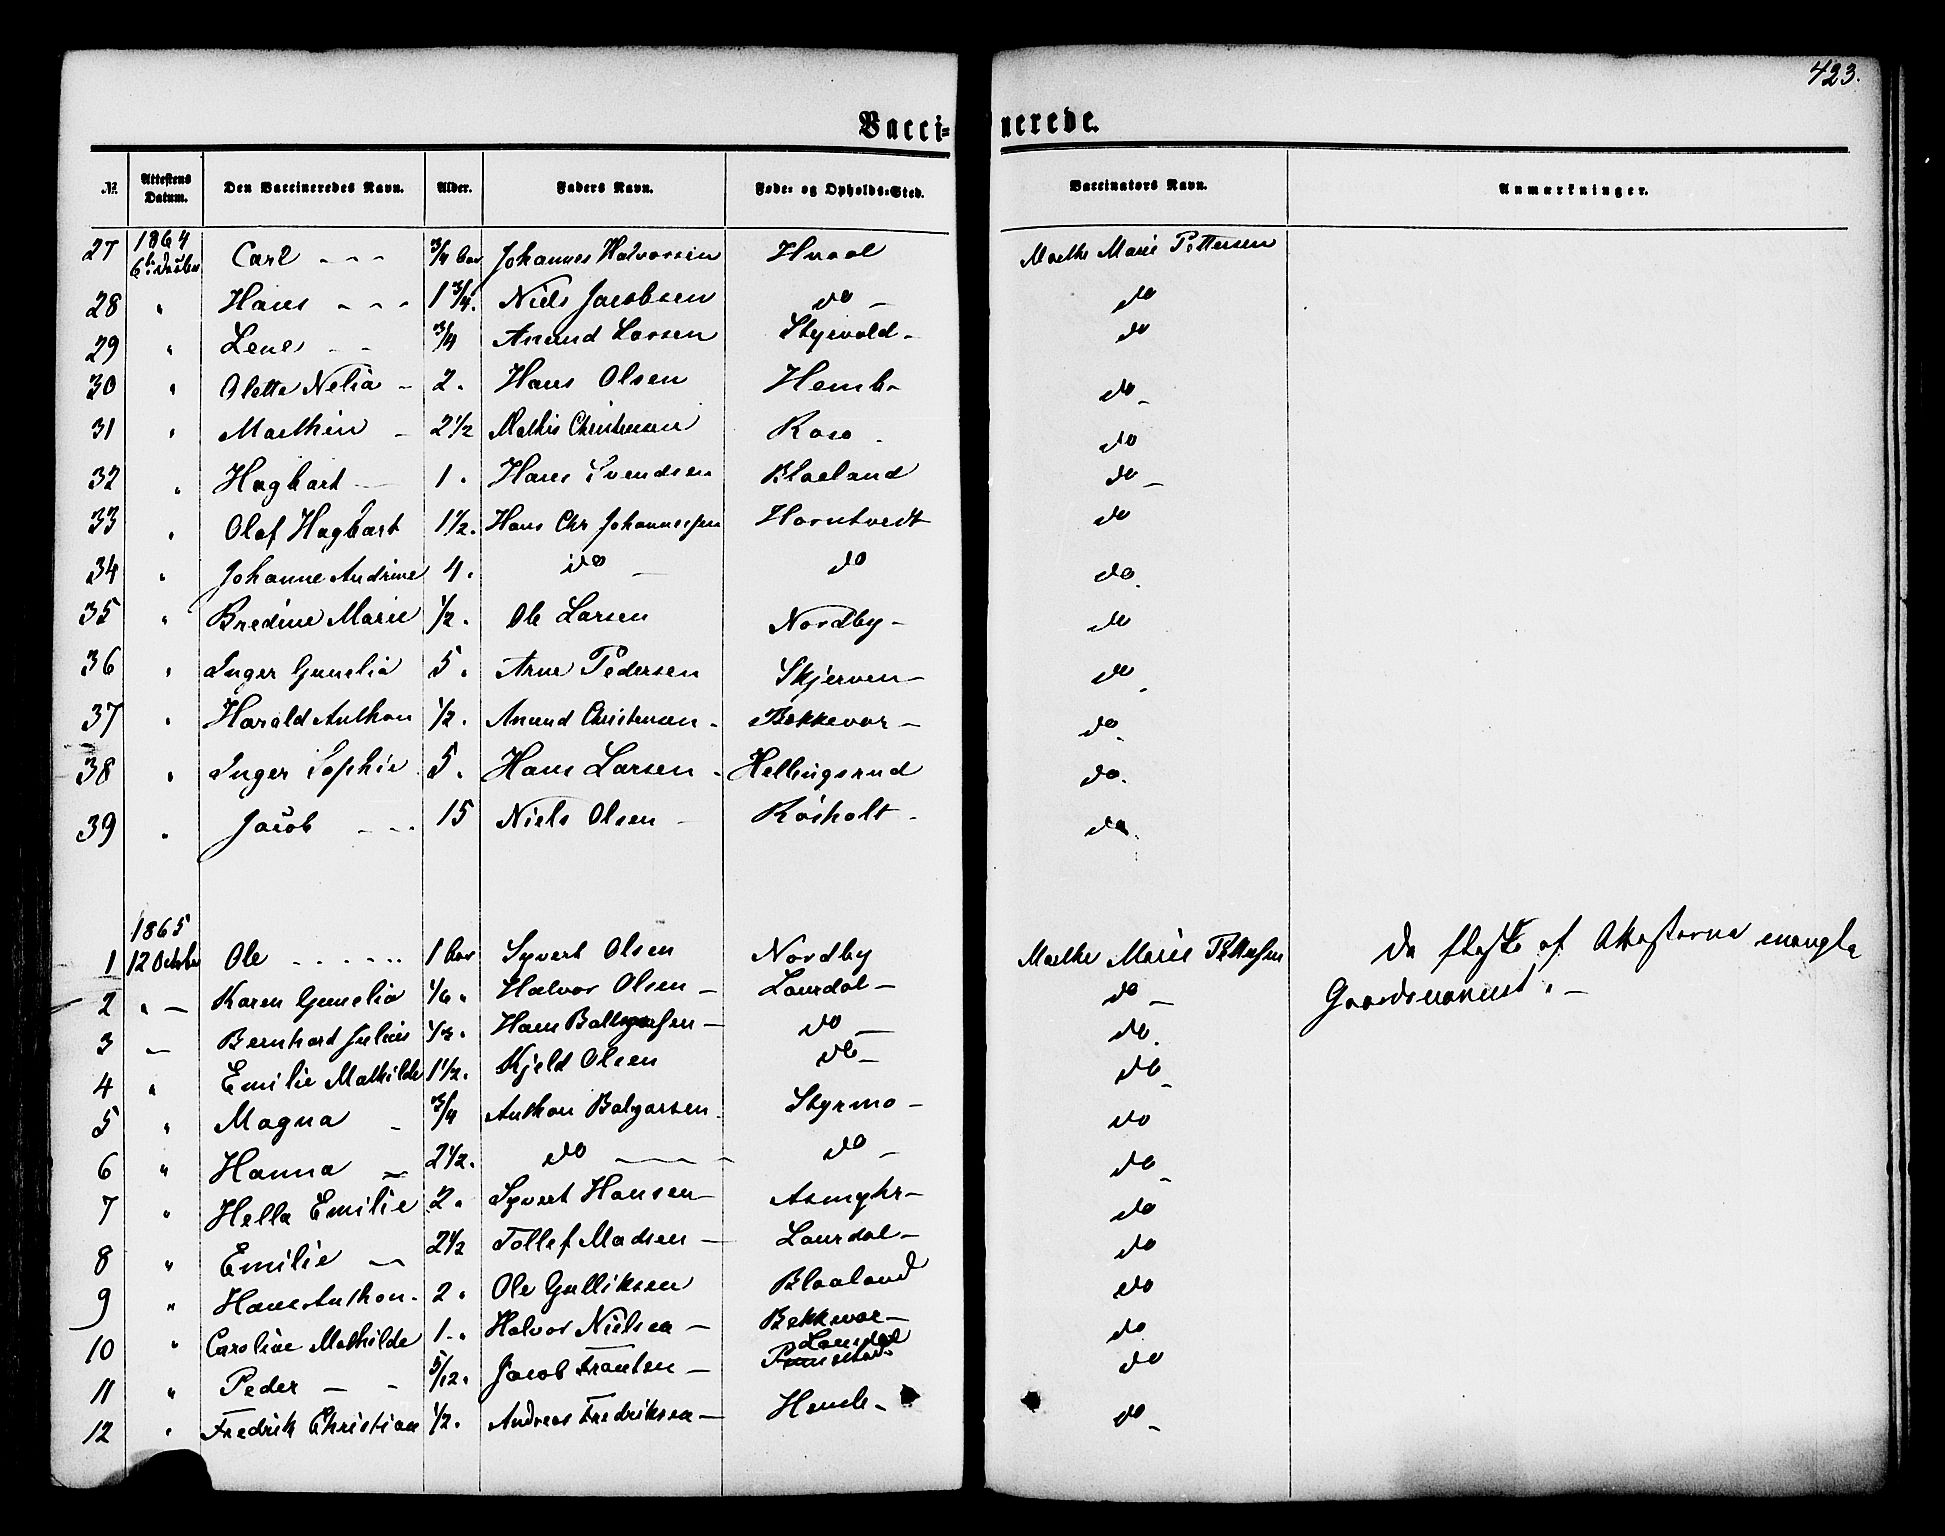 423.
Vaccinerede.
№ Attestens Datum. Den Vaccineredes Navn. Alder. Faders Navn. Føde- og Opholds-Sted. Vaccinators Navn. Anmærkninger.
1864
27 Carl - - - 3/4 Johannes Halvorsen Hvaal Marthe Marie Pettersen
28 " Hans - - - 1 3/4. Niels Jacobsen do - do
29 " Lene - - 3/4 Anund Larsen Styrvold - do
30 " Olette Nelia - 2. Hans Olsen Hemb - do -
31 " Mathin - 2 1/2 Mathis Christensen - do
32 " Hagbart - 1. Hans Svendsen Blaaland do -
33 " Olaf Hagbart 1 1/2. Hans Chr Johannessen Horntvedt do
34 " Johanne Andrine 4. do - do do.
35 " Bredine Marie 1/2. Ole Larsen Nordby - do
36 " Inger Gunelia 5. Arne Pedersen Skjerven - do.
37 " Harald Anthon 1/2. Anund Christensen - Bekkevar - do.
38 " Inger Sophie 5. Hans Larsen - Hellingsrud do.
39 " Jacob - - - 15 Niels Olsen - Røsholt - do.
1865
1 12 October Ole - - - - - 1 Aar Syvert Olsen Nordby Marthe Marie Pettersen Da fleste af Attesterne mangle
2 " - Karen Gunelia 1/6. Halvor Olsen - Laurdal - do - Gaardsnavnet. -
3 - Bernhard Julius Hans do - do.
4 " Emilie Mathilde 1 1/2. Kjeld Olsen do - do -
5 " Magna - 3/4 Anthon Balzersen. Styrmo - do
6 " Hanna - 2 1/2. do - - - - do - do -
7 " Hella Emilie 2. Syvert Hansen - Asmyhr - do
8 " Emilie - 2 1/2 Tollef Madsen - Laurdal - do
9 " Hans Anthon. 2. Ole Gulliksen Blaaland do
10 " Caroline Mathilde 1 -. Halvor Nielsen - Bekkevar - do
Laurdal
11 " Peder - - 5/12. Jacob Frantsen - do
12 " Fredrik Christian 1/2. Andreas Fredriksen - Hemb - do -